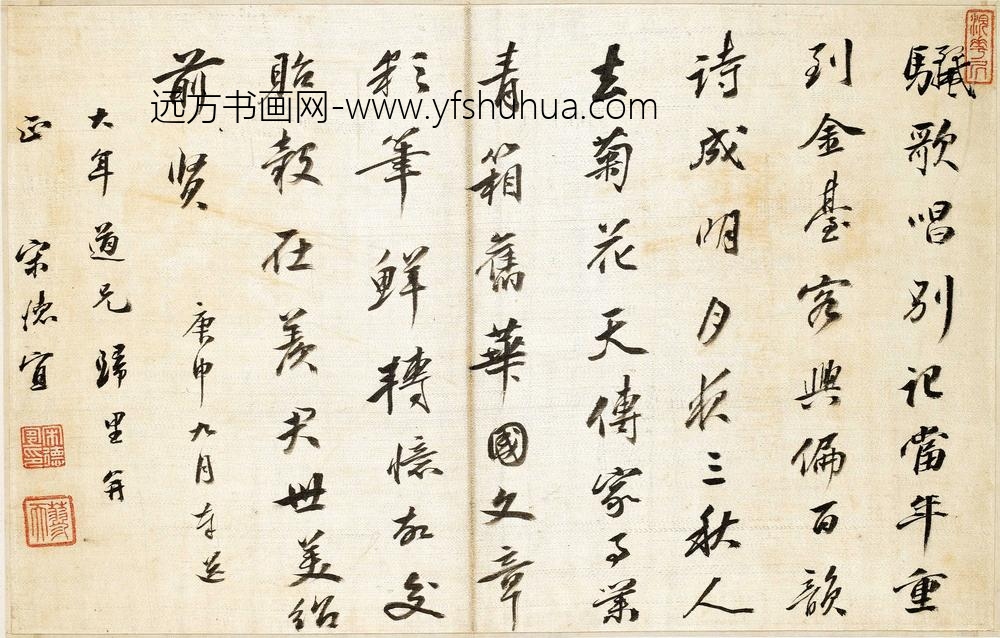 驪歌唱別記當年重
到金臺客興偏百韻
詩成明月夜三秋人
去菊花天傳家事業
青箱舊華國文章
彩筆鮮轉憶故交
貽穀在羨君世美紹
前賢
庚申九月奉送
大年道兄歸里并
正 宋德宜
宋德宜印
远方书画网-www.yfshuhua.com